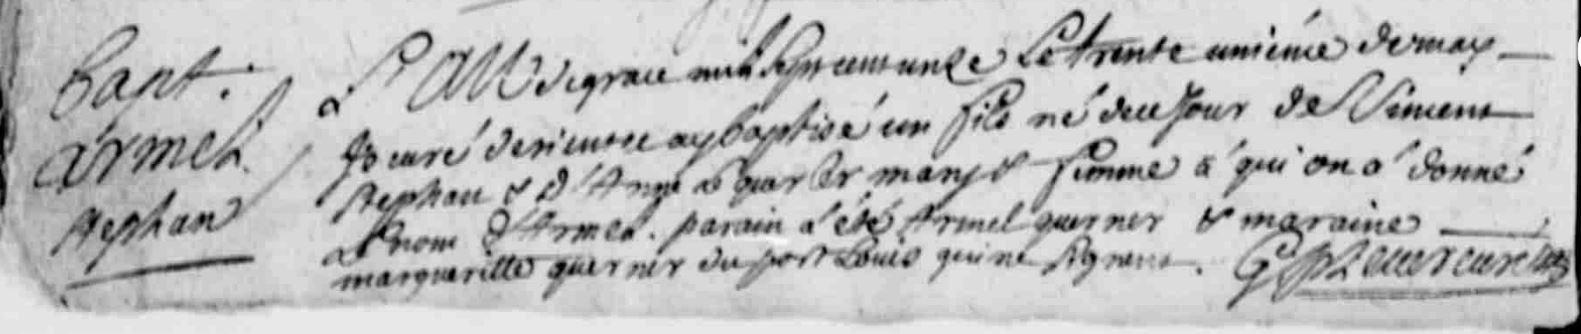 Bapt.
Armel
stephan
L'An de grace mil sept cent unze Le trente unième de may
Je curé de rientec ay baptisé un fils né de ce Jour de Vincent
stephan & d'Anne le quer mary & femme à qui on a donné
Le nom d'Armel. parain a été Armel querner & maraine
margueritte querner du port Louis qui ne signent.